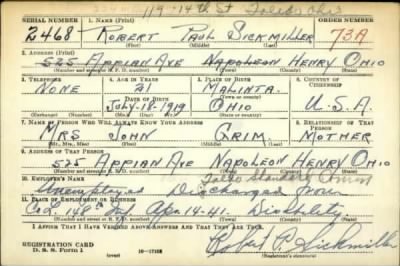 119-14th St Toledo Ohio
SERIAL NUMBER 1. NAME (Print) ORDER NUMBER
2468 ROBERT PAUL SICKMILLER 73A
(First) (Middle) (Last)
2. ADDRESS (Print)
525 APPIAN AVE NAPOLEON HENRY OHIO
(Number and street or R. F. D. number) (Town) (County) (State)
3. TELEPHONE 4. AGE IN YEARS 5. PLACE OF BIRTH 6. COUNTRY OF CITIZENSHIP
NONE 21 MALINTA
DATE OF BIRTH (Town or county)
JULY-18-1919 OHIO U.S.A.
(Exchange) (Number) (Mo.) (Day) (Yr.) (State or country)
7. NAME OF PERSON WHO WILL ALWAYS KNOW YOUR ADDRESS 8. RELATIONSHIP OF THAT PERSON
MRS JOHN GRIM MOTHER
(Mr., Mrs., Miss) (First) (Middle) (Last)
9. ADDRESS OF THAT PERSON
525 APPIAN AVE NAPOLEON HENRY OHIO
(Number and street or R. F. D. number) (Town) (County) (State)
10. EMPLOYER'S NAME
Unemployed Discharged from
11. PLACE OF EMPLOYMENT OR BUSINESS
Co L 148th Inf Apr. 14-41 Disability
(Number and street or R. F. D. number) (Town) (County) (State)
I AFFIRM THAT I HAVE VERIFIED ABOVE ANSWERS AND THAT THEY ARE TRUE.
REGISTRATION CARD
D. S. S. Form 1 (over) Robert P. Sickmiller
(Registrant's signature)